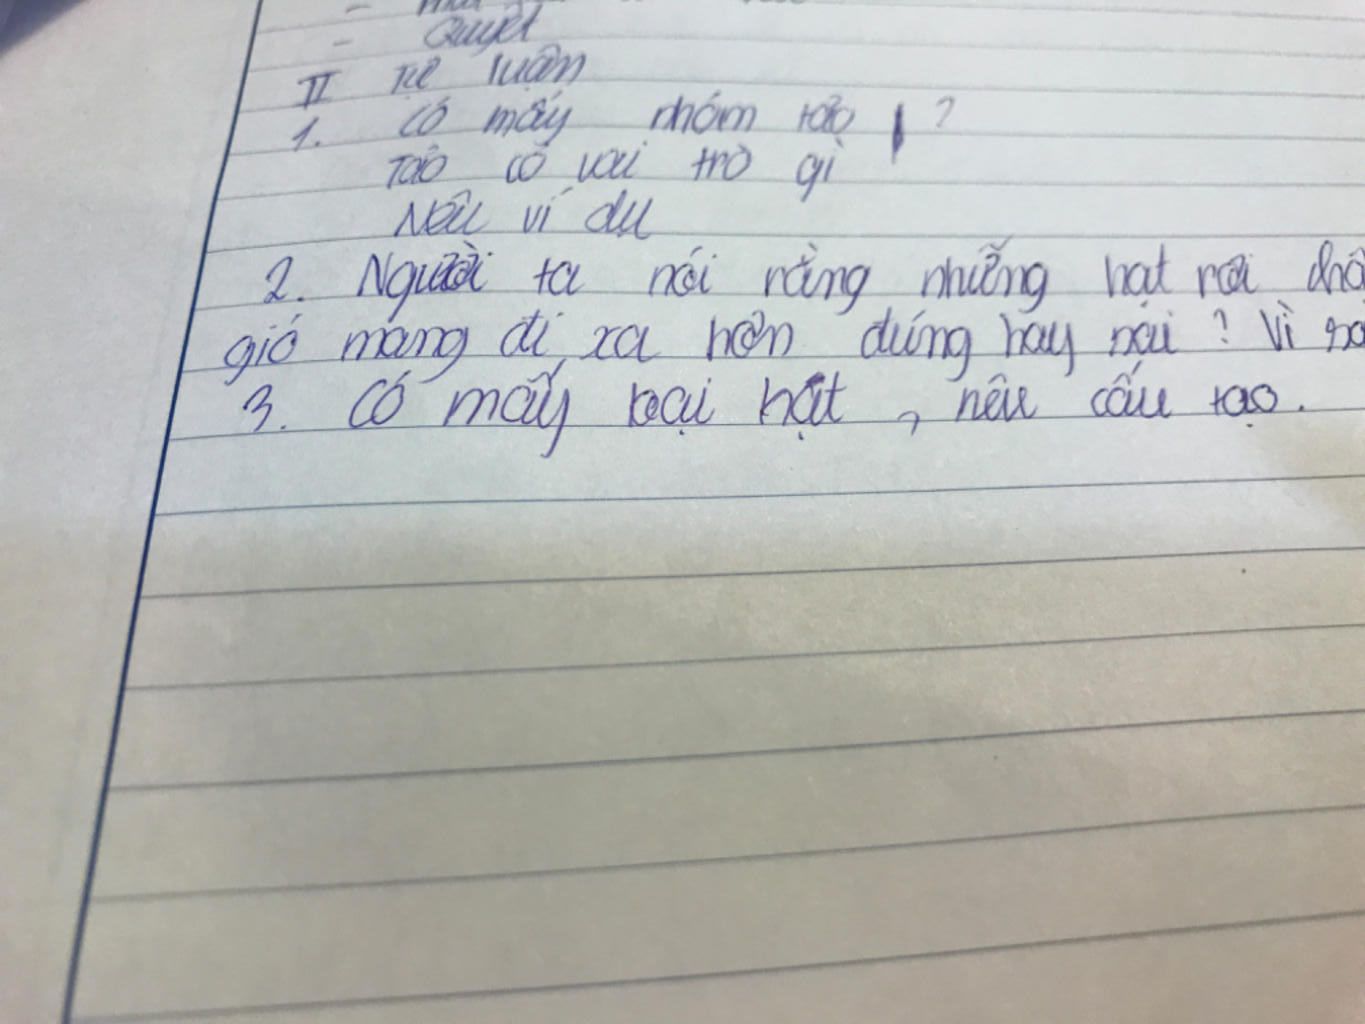 - Quyết
II Tự luận
1. Có mấy nhóm tảo ?
Tảo có vai trò gì
Nêu ví dụ
2. Người ta nói rằng những hạt rơi
gió mang đi xa hơn đúng hay sai ? Vì
3. Có mấy loại hạt , nêu cấu tạo .